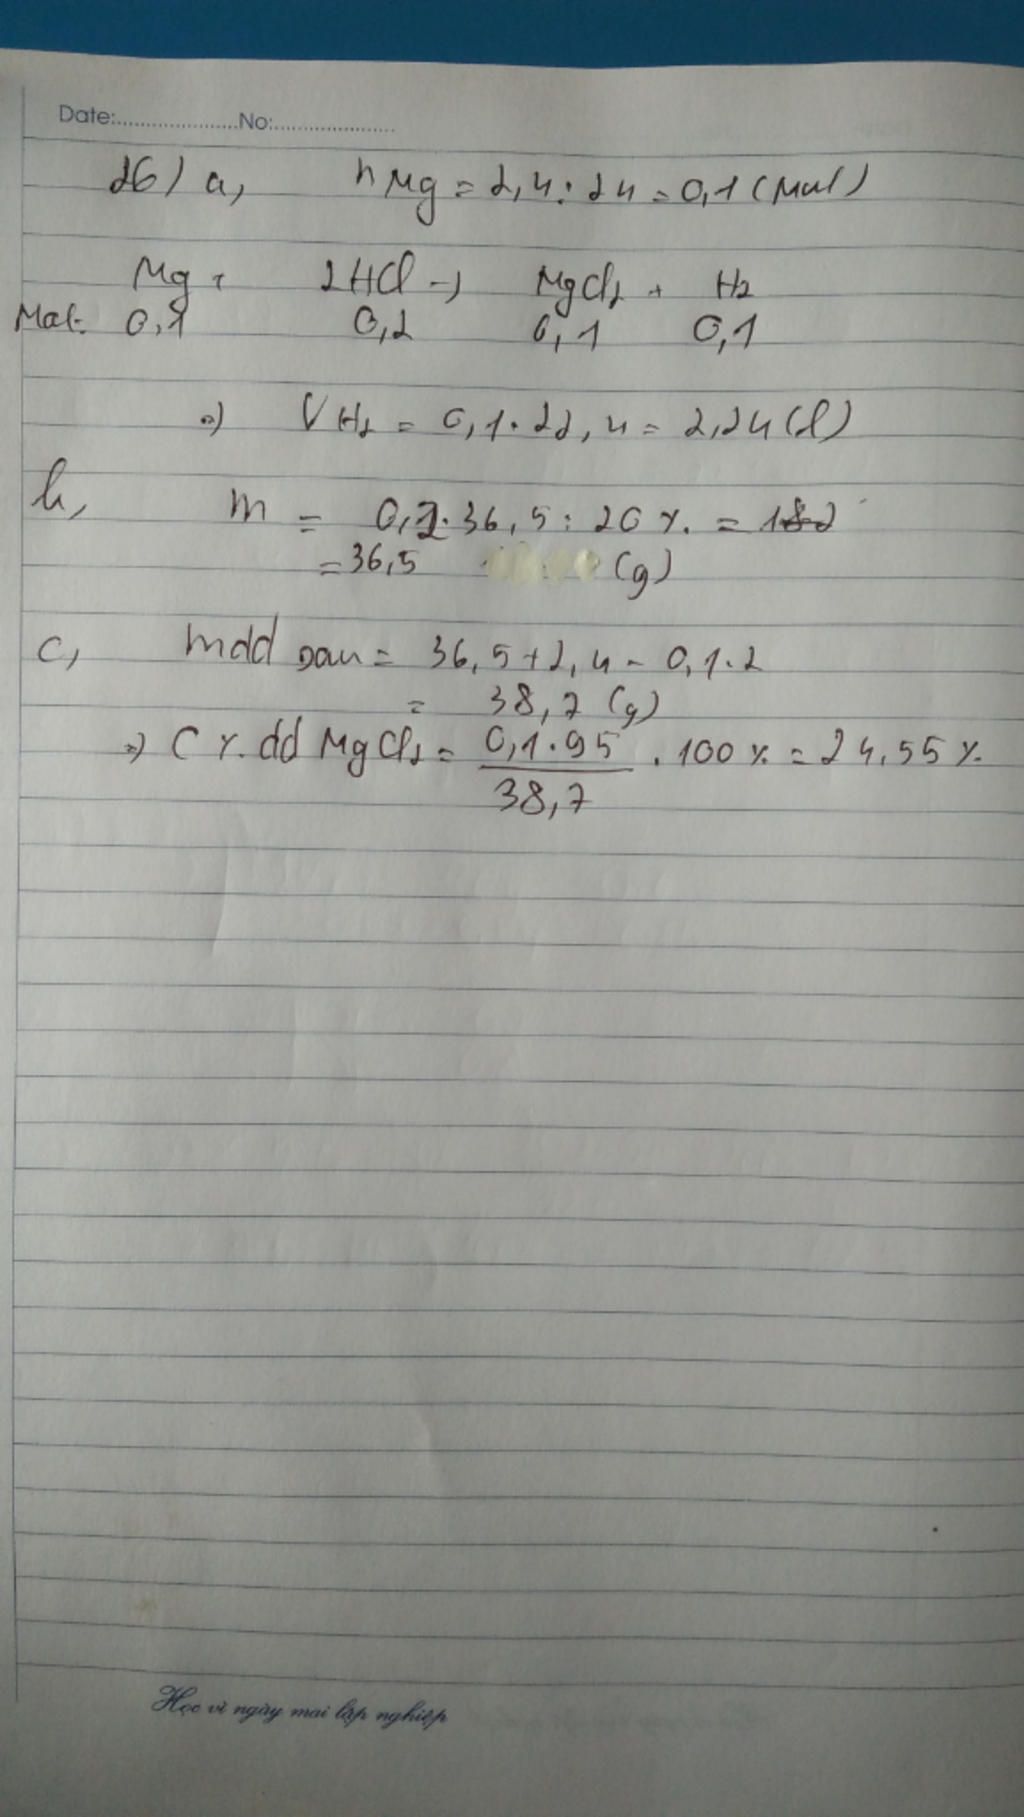 Date:......................No:......................
26) a, nMg = 2,4 : 24 = 0,1 (Mol)
Mg + 2HCl -> MgCl2 + H2
Mol: 0,1 0,2 0,1 0,1
=) VH2 = 0,1 . 22,4 = 2,24 (l)
b, m = 0,2 . 36,5 : 20 % =
= 36,5 (g)
c, mdd sau = 36,5 + 2,4 - 0,1 . 2
= 38,7 (g)
=) C % dd MgCl2 = 0,1 . 95 / 38,7 . 100 % = 24,55 %
Học vì ngày mai lập nghiệp